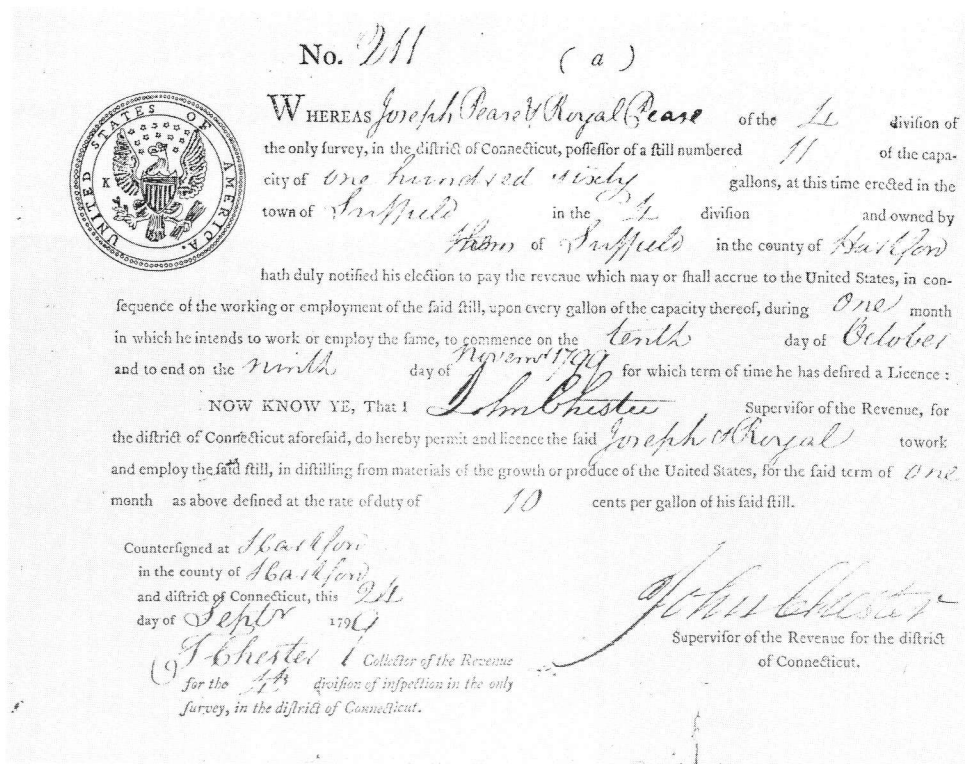 No. 211 (a)
UNITED STATES OF AMERICA.
K
WHEREAS Joseph Pease & Royal Pease of the 4 division of
the only survey, in the district of Connecticut, possessor of a still numbered 11 of the capa-
city of one hundred sixty gallons, at this time erected in the
town of Suffield in the 4 division and owned by
them of Suffield in the county of Hartford
hath duly notified his election to pay the revenue which may or shall accrue to the United States, in con-
sequence of the working or employment of the said still, upon every gallon of the capacity thereof, during one month
in which he intends to work or employ the same, to commence on the tenth day of October
and to end on the ninth day of Novemr 1799 for which term of time he has desired a Licence :
NOW KNOW YE, That I John Chester Supervisor of the Revenue, for
the district of Connecticut aforesaid, do hereby permit and licence the said Joseph & Royal to work
and employ the said still, in distilling from materials of the growth or produce of the United States, for the said term of one
month as above defined at the rate of duty of 10 cents per gallon of his said still.
Countersigned at Hartford
in the county of Hartford
and district of Connecticut, this 24
day of Septr 1799
T Chester Collector of the Revenue
for the 4th division of inspection in the only
survey, in the district of Connecticut.
John Chester
Supervisor of the Revenue for the district
of Connecticut.